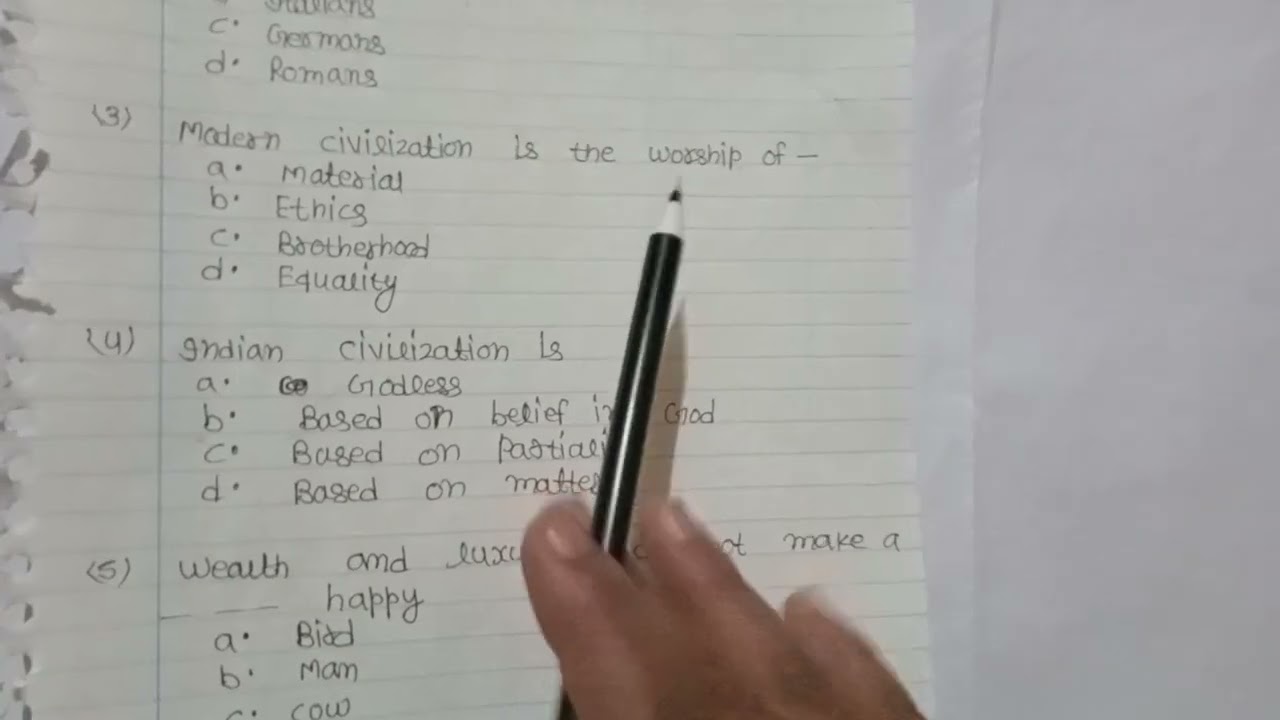 c. Germans
d. Romans
(3) Modern civilization is the worship of —
a. Material
b. Ethics
c. Brotherhood
d. Equality
(4) Indian civilization is
a. Godless
b. Based on belief God
c. Based on
d. Based on
(5) Wealth and make a
___ ___ happy
a. Bird
b. Man
c. Cow